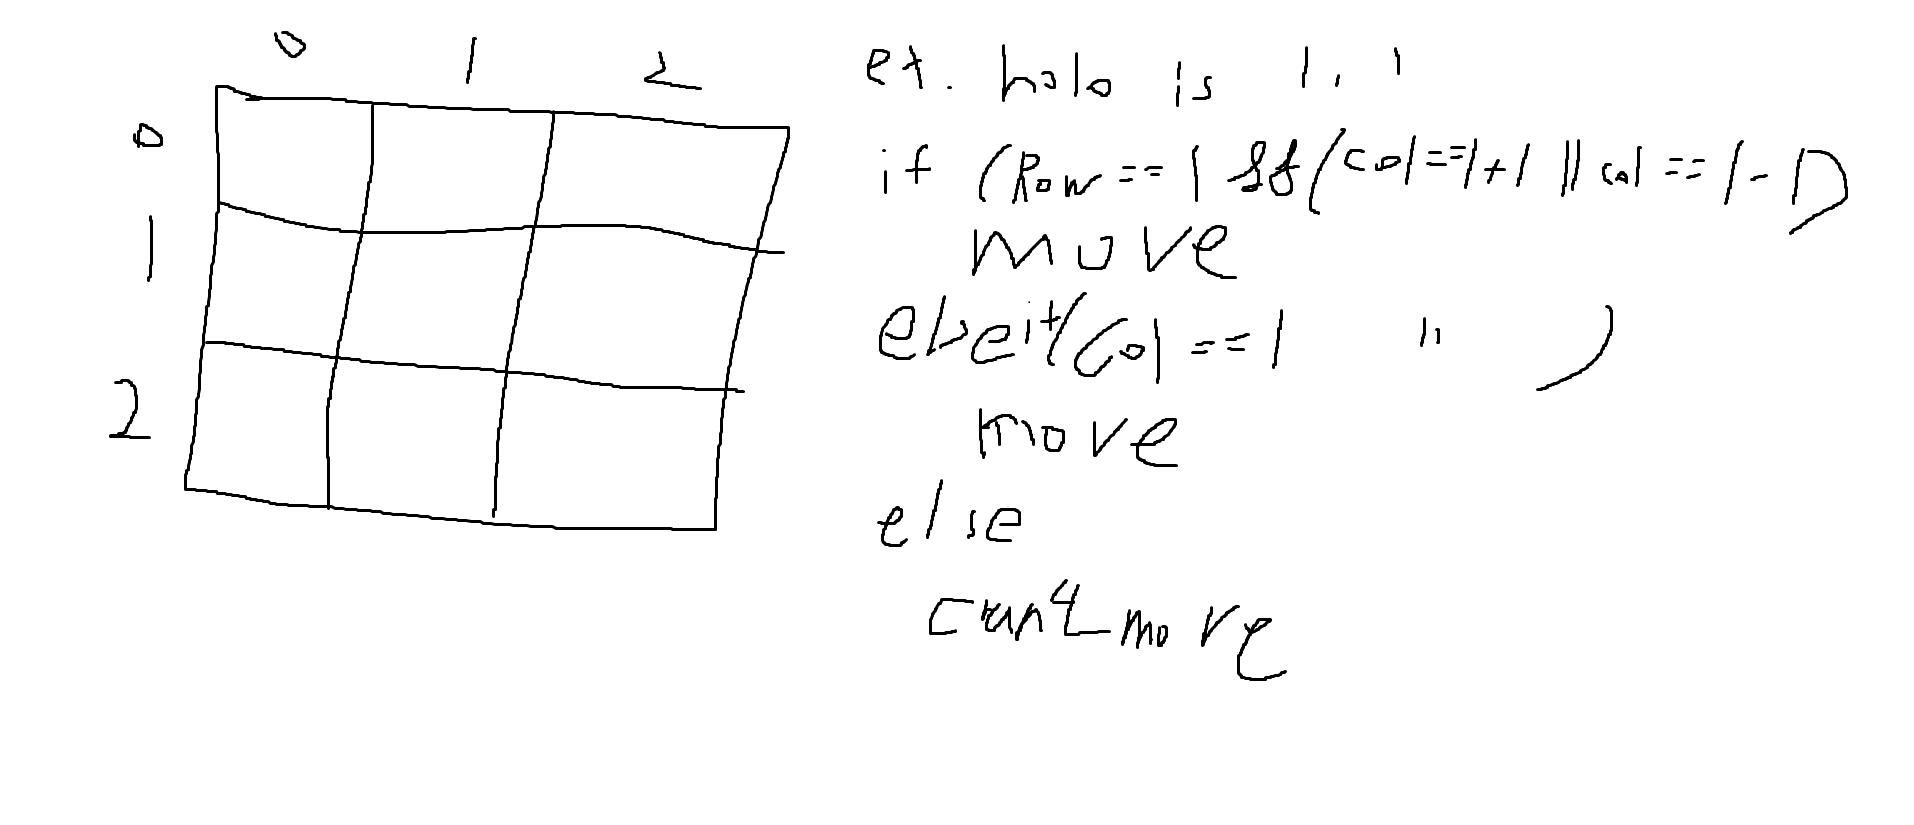 0 1 2
0
1
2
ex. holo is 1,1
if (Row == 1 && (col == 1+1 || col == 1-1)
move
else if (Col == 1 " )
move
else
can't move